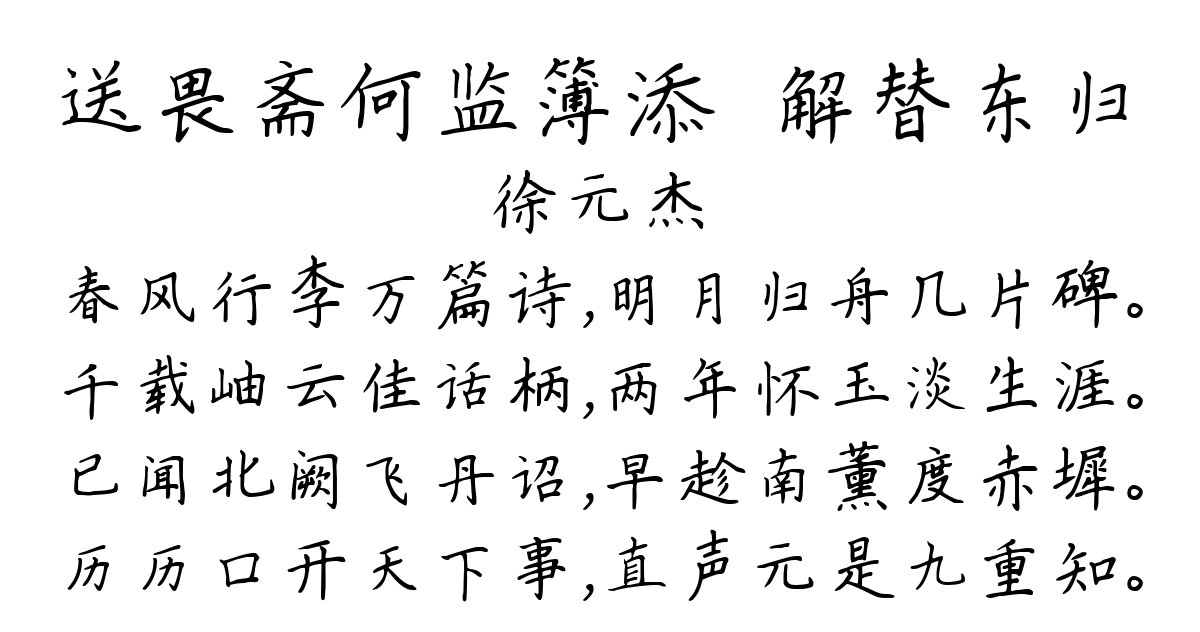 送畏斋何监簿添 解替东归
徐元杰
春风行李万篇诗,明月归舟几片碑。
千载岫云佳话柄,两年怀玉淡生涯。
已闻北阙飞丹诏,早趁南薰度赤墀。
历历口开天下事,直声元是九重知。